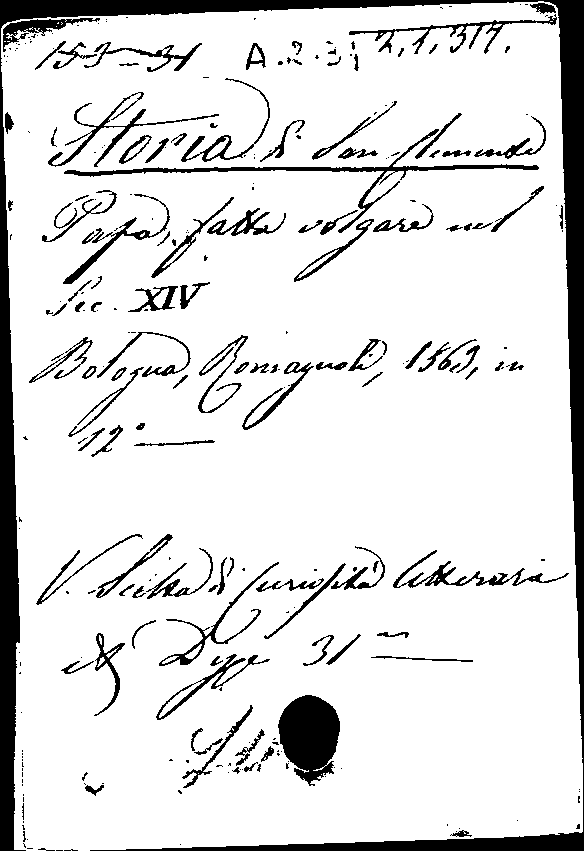 153-31 A.2.31 2.1.314.
Storia di San Clemente
Papa, fatta volgare nel
Sec. XIV
Bologna, Romagnoli, 1863, in
12°
V. Scelta di Curiosità letteraria
Disp 31